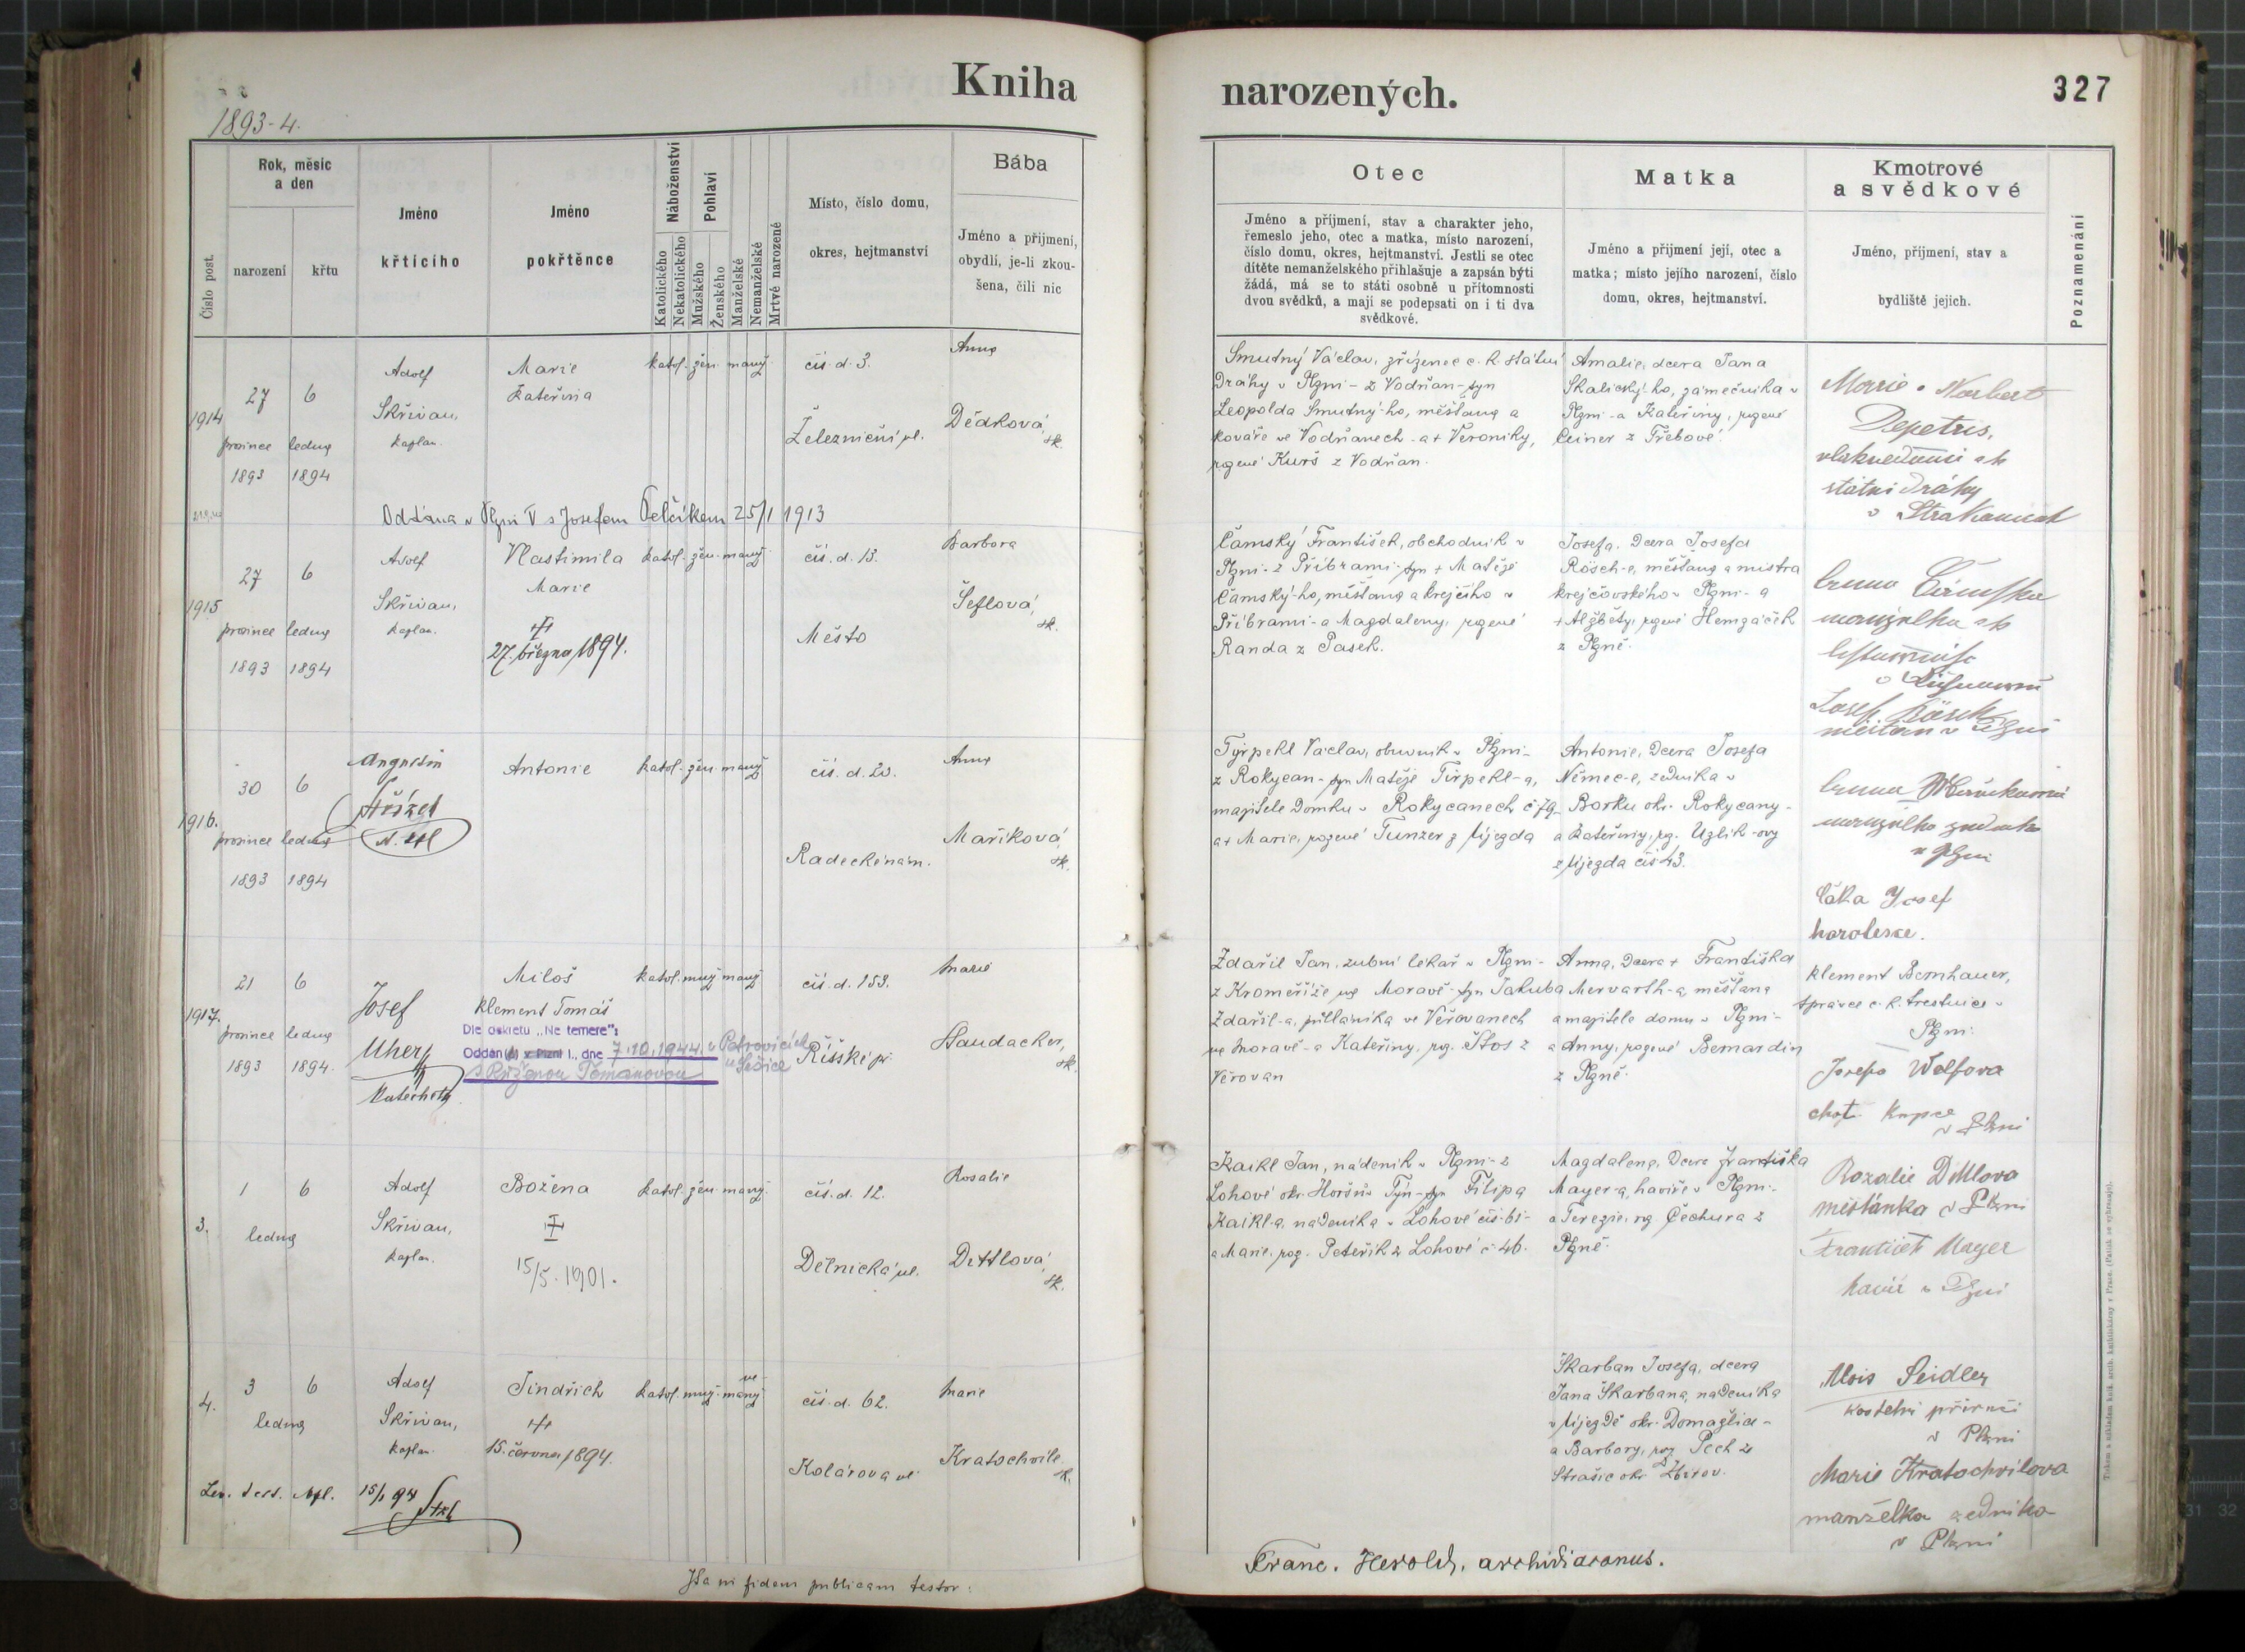 Kniha
narozených.
327
1893-4.
Číslo post.
Rok, měsíc
a den
narození
křtu
Jméno
křtícího
Jméno
pokřtěnce
Náboženství
Katolického
Nekatolického
Pohlaví
Mužského
Ženského
Manželské
Nemanželské
Mrtvé narozené
Místo, číslo domu,
okres, hejtmanství
Bába
Jméno a příjmení,
obydlí, je-li zkou-
šena, čili nic
Otec
Jméno a příjmení, stav a charakter jeho,
řemeslo jeho, otec a matka, místo narození,
číslo domu, okres, hejtmanství. Jestli se otec
dítěte nemanželského přihlašuje a zapsán býti
žádá, má se to státi osobně u přítomnosti
dvou svědků, a mají se podepsati on i ti dva
svědkové.
Matka
Jméno a příjmení její, otec a
matka; místo jejího narození, číslo
domu, okres, hejtmanství.
Kmotrové
a svědkové
Jméno, příjmení, stav a
bydliště jejich.
Poznamenání
1914
27
prosince
1893
6
ledna
1894
Adolf
Skřivan,
kaplan.
Marie
Kateřina
katol. žen. manž.
čís. d. 3.
Železniční ul.
Anna
Dědková,
zk.
Smutný Václav, zřízenec c. k. státní
dráhy v Plzni - z Vodňan - syn
Leopolda Smutný-ho, měšťana a
kováře ve Vodňanech - a + Veroniky,
rozené Kurš z Vodňan.
Amalie, dcera Jana
Skalický-ho, zámečníka v
Plzni - a Kateřiny, rozené
Ceiner z Třebové.
Marie a Norbert
Depetris,
státní dráhy
v Strakonicích
Oddána v Plzni V s Josefem Pelčíkem 25/1 1913
1915
27
prosince
1893
6
ledna
1894
Adolf
Skřivan,
kaplan.
Vlastimila
Marie
27. března 1894.
katol. žen. manž.
čís. d. 13.
Město
Barbora
Šeflová,
zk.
Čámský František, obchodník v
Plzni - z Příbrami - syn + Matěje
Čámský-ho, měšťana a krejčího v
Příbrami - a Magdaleny, rozené
Randa z Pasek.
Josefa, dcera Josefa
Rösch-e, měšťana a mistra
krejčovského v Plzni - a
+ Alžběty, rozené Hemzáček
z Plzně.
manželka
Josef Rösch
měšťan v Plzni
1916.
30
prosince
1893
6
ledna
1894
Augustin
Antonie
katol. žen. manž.
čís. d. 20.
Radeckého nám.
Anna
Maříková,
zk.
Týrpekl Václav, obuvník v Plzni -
z Rokycan - syn Matěje Tirpekl-a,
majitele domku v Rokycanech č. 79 -
a + Marie, rozené Tunzer z Újezda
Antonie, dcera Josefa
Němec-e, zedníka v
Borku okr. Rokycany -
a Kateřiny, roz. Uzlík-ovy
z Újezda čís 43.
manželka zedníka
v Plzni
Čáka Josef
1917.
21
prosince
1893
6
ledna
1894.
Josef
Uher
katecheta
Miloš
Klement Tomáš
Dle dekretu „Ne temere":
Oddán(a) v Plzni I., dne 7.10.1944 v Petrovicích
u Sušice
s Růženou Tomanovou
katol. muž. manž.
čís. d. 153.
Říšské př.
Marie
Haudacker,
zk.
Zdařil Jan, zubní lékař v Plzni -
z Kroměříže na Moravě - syn Jakuba
Zdařil-a, půlláníka ve Věrovanech
na Moravě - a Kateřiny, roz. Štos z
Věrovan
Anna, dcera + Františka
Mervarth-a, měšťana
a majitele domu v Plzni -
a Anny, rozené Bernardin
z Plzně.
Klement Bernhauer,
správce c. k. trestnice v
Plzni.
Josefa Wolfova
choť kupce
v Plzni
3.
1
ledna
6
Adolf
Skřivan,
kaplan.
Božena
15/5. 1901.
katol. žen. manž.
čís. d. 12.
Dělnická ul.
Rosalie
Dittlová,
zk.
Kaikl Jan, nádeník v Plzni - z
Lohové okr. Horšův Týn - syn Filipa
Kaikla, nádeníka v Lohové čís. 61 -
a Marie, roz. Peteřík z Lohové č. 46.
Magdalena, dcera Františka
Mayer-a, havíře v Plzni -
a Terezie, roz. Čechura z
Plzně.
Rozalie Dittlova
měšťanka v Plzni
František Mayer
havíř v Plzni
4.
3
ledna
6
Adolf
Skřivan,
kaplan.
Jindřich
15. června 1894.
katol. muž. nemanž.
čís. d. 62.
Kolárova ul.
Marie
Kratochvíle,
zk.
Škarban Josefa, dcera
Jana Škarbana, nádeníka
v Újezdě okr. Domažlice -
a Barbory, roz. Pech z
Strašic okr. Zbirov.
Alois Seidler
kostelní příručí
v Plzni
Marie Kratochvilova
manželka zedníka
v Plzni
15/1 94
Ita ni fidem publicam testor:
Franc. Herold, archidiaconus.